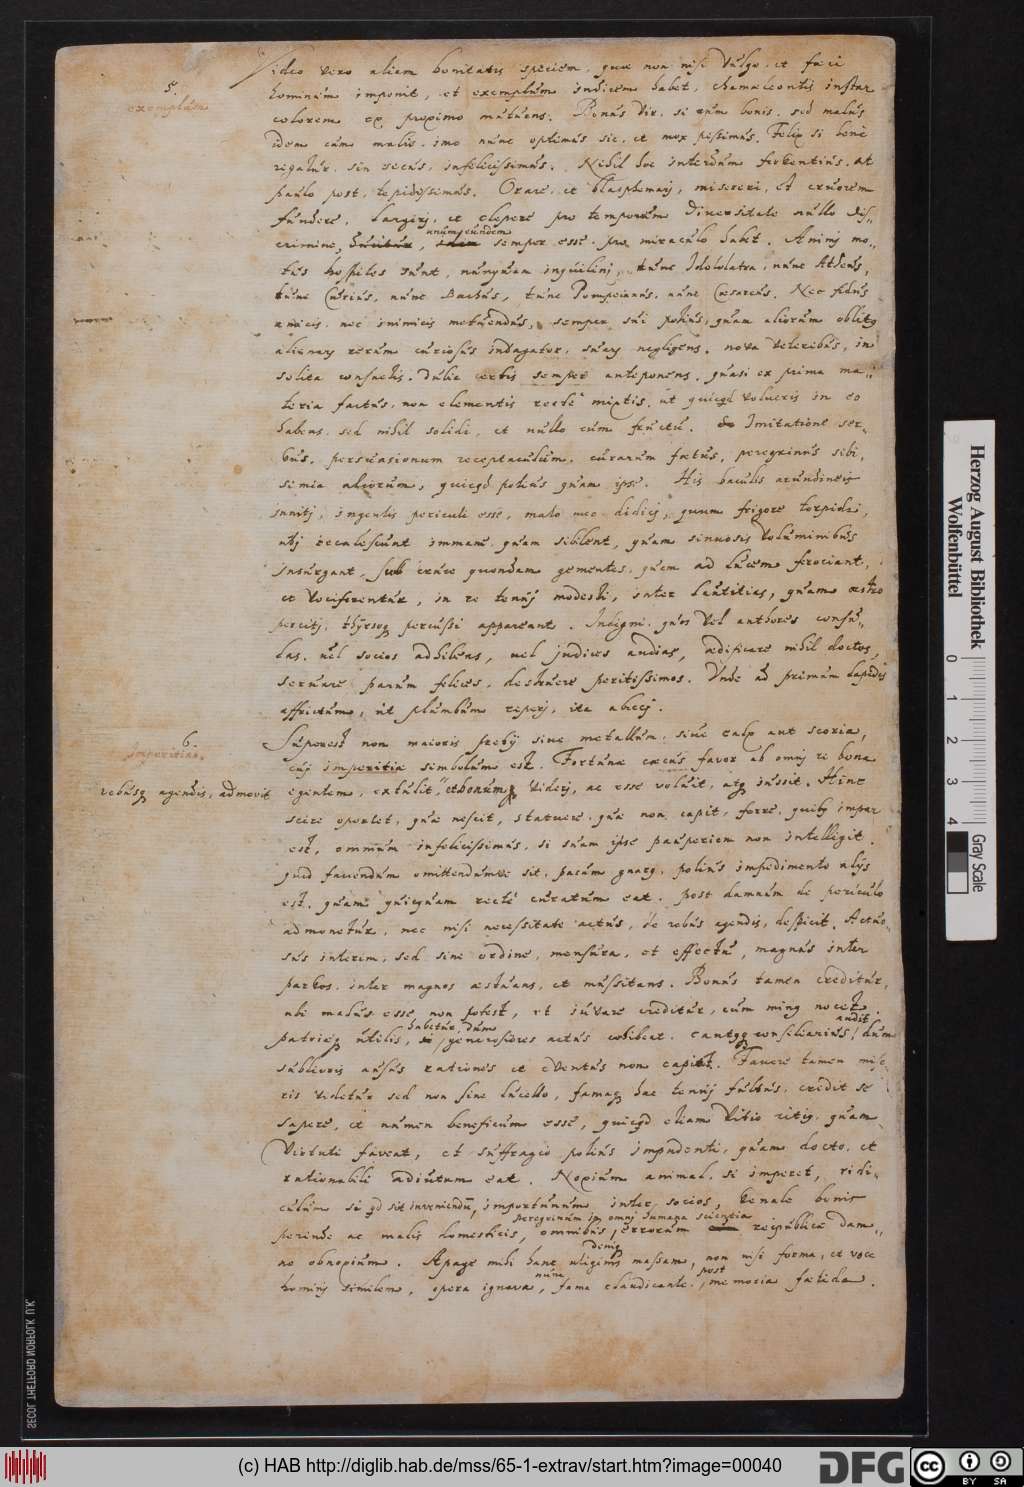 5.
exemplum
Video vero aliam bonitatis speciem, quae non nisi vulgo, et faeci
hominum imponit, et exemplum indicem habet, chamaeleontis instar
colorem ex proximo mutuens. Bonus vir, si cum bonis, sed malus
idem cum malis, imo nunc optimus sic, et mox pessimus. Felix si bene
regatur, sin secus, infelicissimus. Nihil hoc interdum ferventius, at
paulo post, tepidissimus. Orare, et blasphemary, misereri, et cruorem
fundere, largiry, et clepere pro temporum diversitate nullo dis-
crimine, unum eundem semper esse, pro miraculo habet. Animi mo-
tus hospites sunt, nunquam inquilini, tunc Idololatra, nunc Atheus,
tunc Curius, nunc Bachus, tunc Pompeianus, nunc Caesareus. Nec fidus
amicis, nec inimicis metuendus, semper sui potius, quam aliorum oblitus
alienary rerum curiosus indagator, suary negligens, nova veteribus, in
solita consuetis, dulia certis semper anteponens, quasi ex prima ma-
teria factus, non elementis recte mixtis, ut quicqd volueris in eo
habeas, sed nihil solidi, et nullo cum fructu. Imitatione ser-
vus, persuasionum receptaculum, curarum foetus, peregrinus sibi,
simia aliorum, quicqd potius quam ipse. His baculis arundineis
inniti, ingentis periculi esse, malo meo didici, quum frigore torpidi,
ubi recalescunt immane quam sibilent, quam sinuosis voluminibus
insurgant, sub cruce quondam gementes, quem ad lucem ferociant,
et vociferentur, in re tenui modesti, inter lautitias, quam oestro
perciti, thyrsoq percussi appareant. Indigni, quos vel authores consu-
las, vel socios adhibeas, vel judices audias, aedificare nihil doctos,
servare parum felices, destruere peritissimos. Unde ad primum lapidis
affrictum, ut plumbum reperi, ita abieci.
6.
Imperitiae.
Superest non maioris pretij sive metallum, sive calx aut scoria,
cui imperitia symbolum est. Fortunae caecus favor ab omni re bona
rebusq agendis, admovit
egentem, extulit, et bonum videri, ac esse voluit, atq iussit. Hinc
scire oportet, quae nescit, statuere, quae non capit, ferre, quibus impar
est, omnium infelicissimus, si suam ipse pauperiem non intelligit.
quid favendum omittendumve sit, parum gnarus, potius impedimento alijs
est, quam quicquam recte curatum eat. Post damnum de periculo
admonetur, nec nisi necessitate actus, de rebus agendis, despicit. Actuo-
sus interim, sed sine ordine, mensura, et effectu, magnus inter
parvos, inter magnos aestuans, et mussitans. Bonus tamen creditur,
ubi malus esse non potest, et iuvare creditur, cum minus nocet.
audit
habetur, dum
patriaeq utilis, generosiores actus cohibeat. cautusq consiliarius, dum
sublevis ausus rationes et eventus non capit. Favere tamen mise-
ris videtur sed non sine lucello, famaq hac tenui fultus, credit se
sapere, et numen beneficum esse, quicqd etiam vitio citius, quam
virtuti faveat, et suffragio potius impudenti, quam docto, et
rationabili adiutum eat. Noxium animal, si imperet, ridi-
culum si qd sit inveniendum, importunum inter socios, venale bonis
peregrinum in omni humana scientia
perinde ac malis domesticis, omnibus, errorum reipublicae dam-
deniq
no obnoxium. Apage mihi hanc uliginis massam, non nisi forma, et voce
nunc post
hominis similem, opera ignava, fama claudicante, memoria foetida.
Herzog August Bibliothek
Wolfenbüttel
0 1 2 3 4
Gray Scale
SECOL THETFORD NORFOLK U.K.
(c) HAB http://diglib.hab.de/mss/65-1-extrav/start.htm?image=00040
DFG
cc BY SA